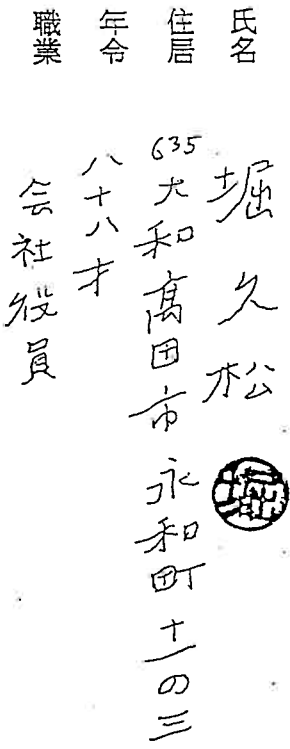 氏名 堀久松 堀
住居 635 大和高田市永和町十一の三
年令 八十八才
職業 会社役員